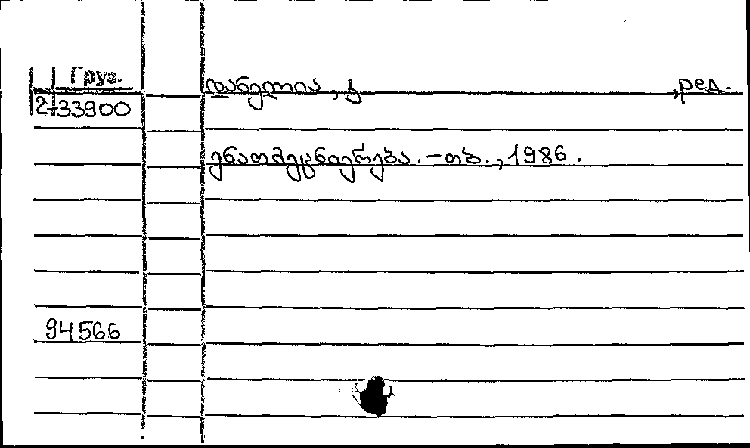 Груз. დანელია, კ ред.
2-33900
ენათმეცნიერება. – თბ., 1986.
94566